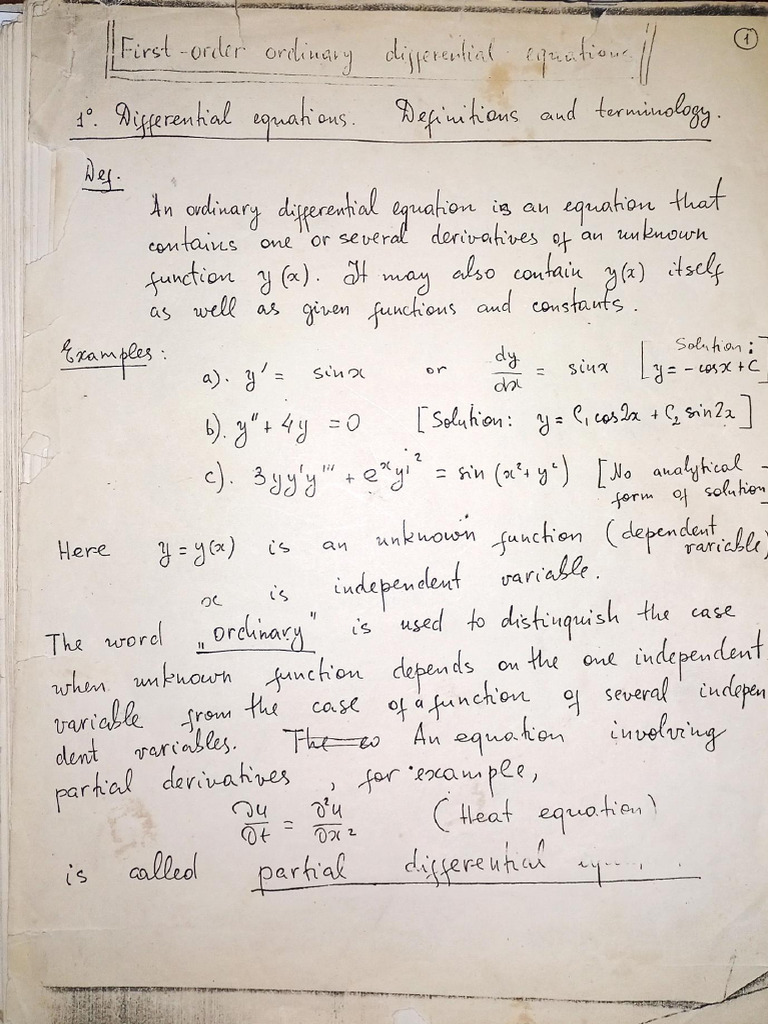 1
First-order ordinary differential equations
1°. Differential equations. Definitions and terminology.
Def.
An ordinary differential equation is an equation that
contains one or several derivatives of an unknown
function y(x). It may also contain y(x) itself
as well as given functions and constants.
Examples:
a). y' = sinx or dy/dx = sinx [Solution: y = - cosx + C]
b). y'' + 4y = 0 [Solution: y = C₁ cos2x + C₂ sin2x]
c). 3yy'y''' + eˣy'² = sin (x² + y²) [No analytical form of solution
Here y = y(x) is an unknown function (dependent variable)
x is independent variable.
The word „ordinary" is used to distinguish the case
when unknown function depends on the one independent
variable from the case of a function of several indepen
dent variables. An equation involving
partial derivatives, for example,
∂u/∂t = ∂²u/∂x² (Heat equation)
is called partial differential